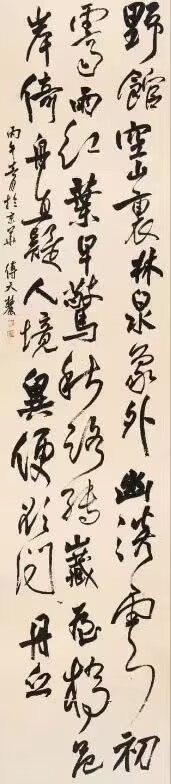 野館空山裏林泉象外幽淡雲初
霽雨紅葉早驚秋路轉山藏屋橋危
岸倚舟直疑人境異便欲問丹丘
丙午春月於京華 傅天